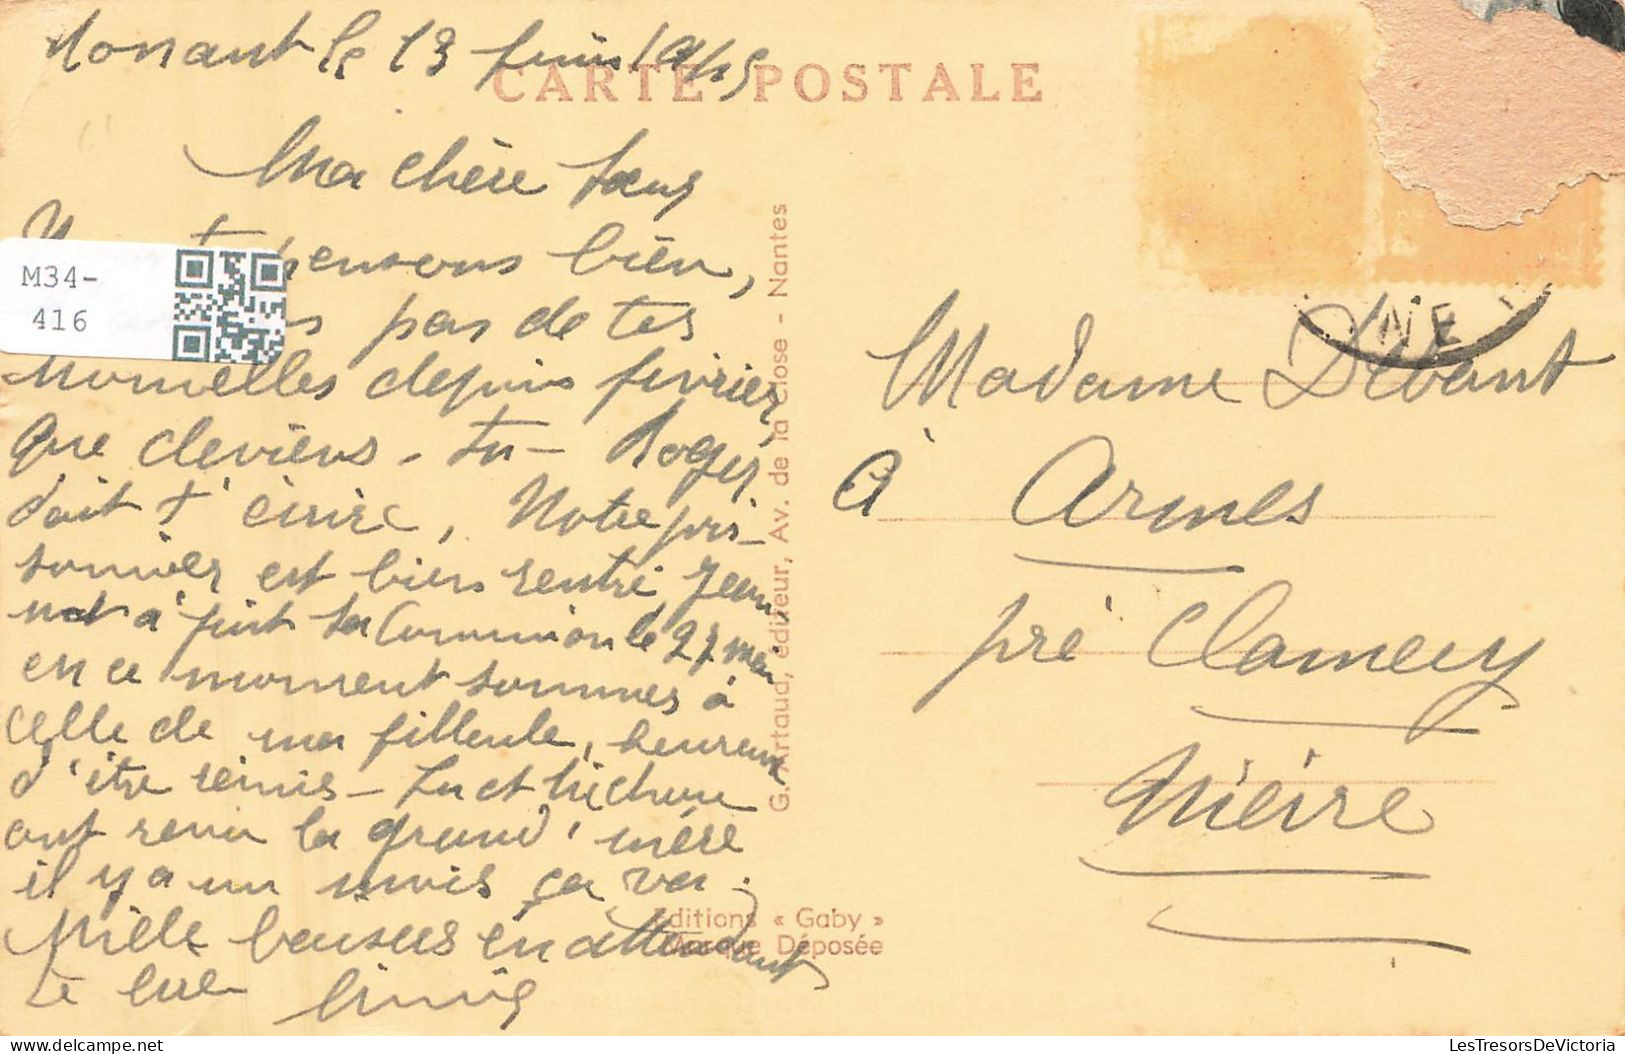 le 13 juin 1945
CARTE POSTALE
Ma chère Soeur
pensons bien,
M34-
416
pas de tes
nouvelles depuis fevrier,
que deviens-tu - Roger
doit t'écrire, Notre pri-
sonnier est bien rentré, Jean
not à fait sa Communion le 27 mai
en ce moment sommes à
celle de ma filleule, heureux
d'être réunis - 
ont revu la grand'mère
il y a un mois ça va.
Mille baisers en attendant
de te lire
G. Artaud, éditeur, Av. de la Close - Nantes
Editions « Gaby »
Marque Déposée
NE
Madame
à Armes
pré Clamecy
Nièvre
LesTresorsDeVictoria
www.delcampe.net